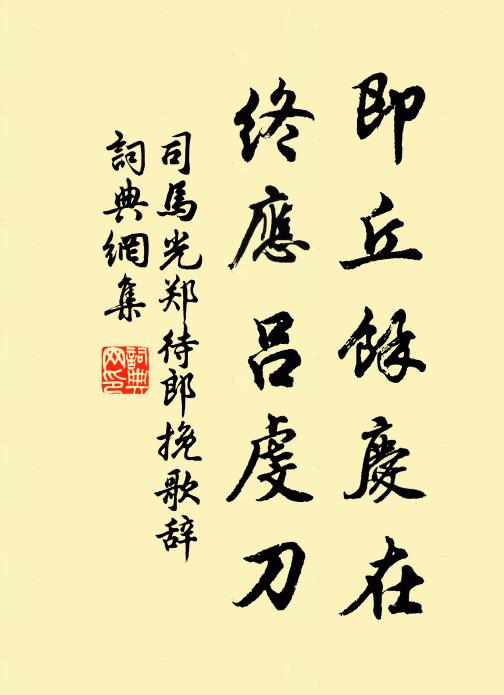 即丘餘慶在
終應呂虔刀
司馬光郑待郎挽歌辞
詞典網集
詞典网印